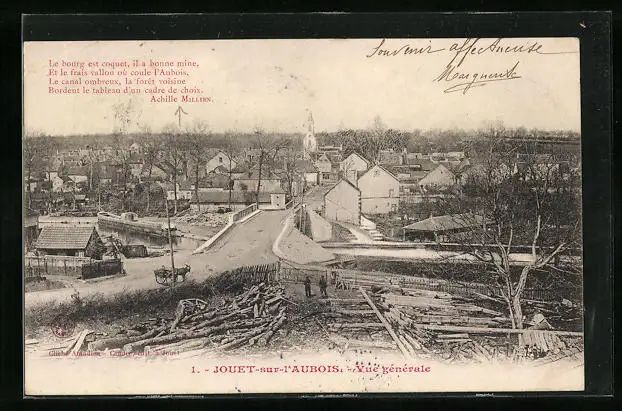 Le bourg est coquet, il a bonne mine,
Et le frais vallon où coule l'Aubois,
Le canal ombreux, la forêt voisine
Bordent le tableau d'un cadre de choix.
Achille MILLIEN.
Souvenir affectueuse
Marguerite
Cliché Amadieu
1. - JOUET-sur-l'AUBOIS. - Vue générale